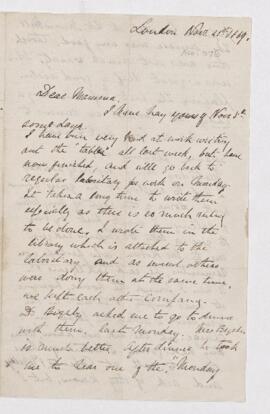 London Nov. 21st 1869.
Dear Mamma,
I have may yours of Nov. 5th
some days.
I have been very hard at work writing
out the "tables" all last week, but have
now finished, and will go back to
regular laboratory work on Monday.
It takes a long time to write them
especially as there is so much ruling
to be done. I wrote them in the
library which is attached to the
laboratory and as several others
were doing them at the same time,
we kept each other company.
Dr Bigsby asked me to go to dinner
with them, last Monday. Mrs Bigsby
is much better. After dinner he took
me to hear one of the "Monday